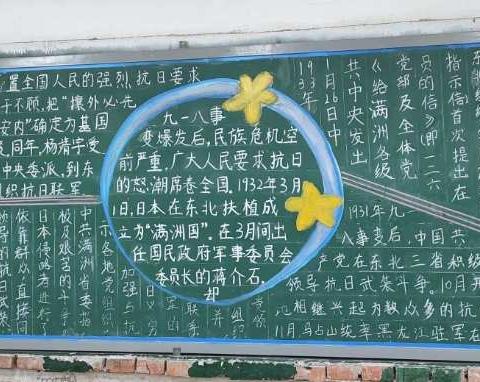 置全国人民的强烈抗日要求
于不顾,把“攘外必先
安内”确定为基国
及,同年,杨靖宇受
中央委派,到东
组织抗日联军
九一八事
变爆发后,民族危机空
前严重,广大人民要求抗日
的怒潮席卷全国。1932年3月
1日,日本在东北扶植成
立为“满洲国”。在3月间出
任国民政府军事委员会
委员长的蒋介石,
却
1933年
1月26日中
共中央发出
《给满洲各级
党部及全体党
员的信》(即一二六
指示信)首次提出在
1931年九一
八事变后,中国共
产党在东北三省积极
领导抗日武装斗争。10月开
始相继兴起为数众多的抗
11月马占山统率黑龙江驻军在
中共满洲省委指
极及艰苦的斗争
日本侵略者进行了
依靠群众直接同
示各地党组织
加强与抗